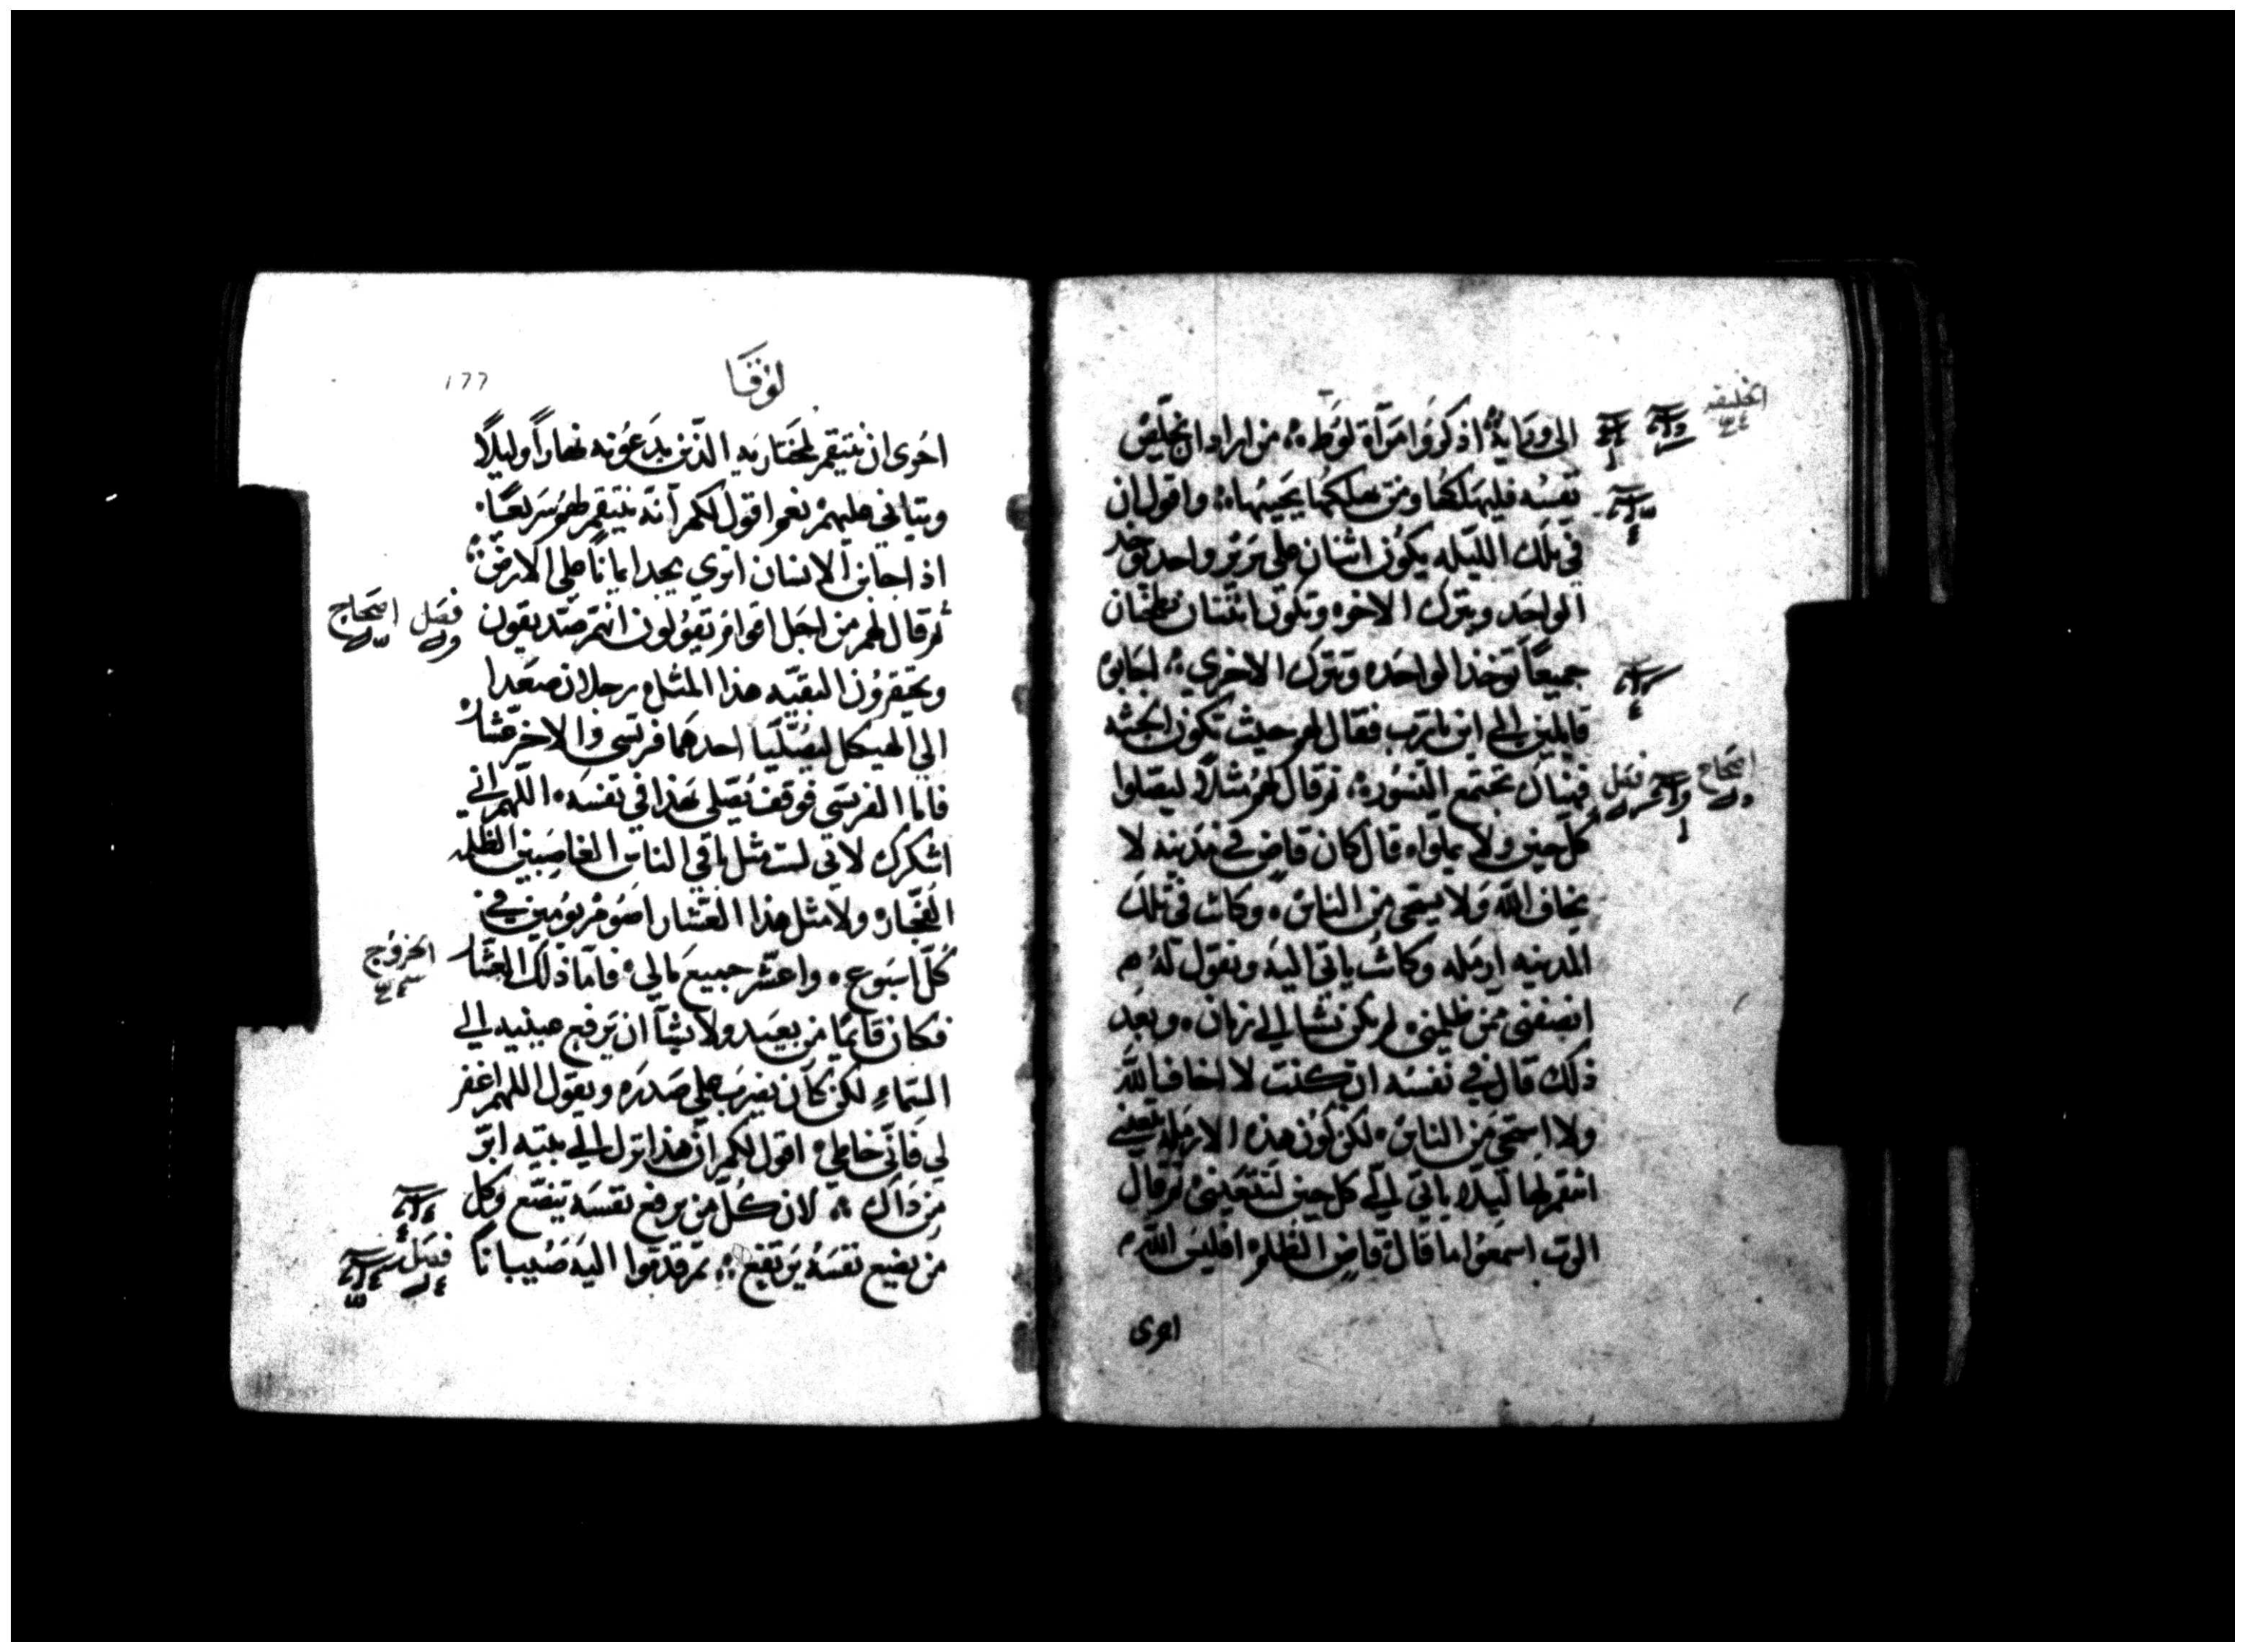 الى وراية اذكروا امرآة لوط من اراد ان يخلص
نفسه فليهلكها ومن يهلكها يحييها واقول ان
في تلك الليله يكون اثنان على سرير واحد يوخد
الواحد ويترك الاخر وتكون اثنتان تطحنان
جميعاً توخذ الواحده وتترك الاخرى اجابوه
قايلين الى اين يا رب فقال لهم حيث تكون الجثه
فهناك تجتمع النسور ثم قال لهم مثلاً ليصلوا
كل حين ولا يملوا قال كان قاضٍ في مدينه لا
يخاف الله ولا يستحي من الناس وكانت في تلك
المدينه ارمله وكانت ياتي اليه وتقول له
انصفني ممن ظلمني لم يكن يشا الى زمان وبعد
ذلك قال في نفسه ان كنت لا اخاف الله
ولا استحي من الناس لكن لكون هذه الارمله تعنيني
انتقم لها ليلا ياتي الي كل حين لتتعبني ثم قال
الرب اسمعوا ما قال قاضي الظلم افليس الله
احرى
الخليقه
فصل
اصحاح
لوقا
١٦٦
احرى ان ينتقم لمختاريه الذين يدعونه نهاراً وليلاً
ويتانى عليهم نعم اقول لكم انه ينتقم لهم سريعاً
اذا جا ابن الانسان اترى يجد ايماناً على الارض
ثم قال لهم من اجل اقوام يقولون انهم صديقون
ويحقرون البقيه هذا المثل رجلان صعدا
الى الهيكل ليصليا احدهما فريسي والاخر عشار
فاما الفريسي فوقف يصلي بهذا في نفسه اللهم اني
اشكرك لاني لست مثل باقي الناس الغاصبين الظلمه
الفجار ولا مثل هذا العشار اصوم يومين في
كل اسبوع واعشر جميع مالي فاما ذلك العشار
فكان قايمًا من بعيد ولا يشآ ان يرفع عينيه الى
السماء لكن كان يضرب على صدره ويقول اللهم اغفر
لي فاني خاطي اقول لكم ان هذا نزل الى بيته ابر
من ذاك لان كل من يرفع نفسه يتضع وكل
من يضع نفسه يرتفع ثم قدموا اليه صبياناً
فصل اصحاح
الخروج
فصل